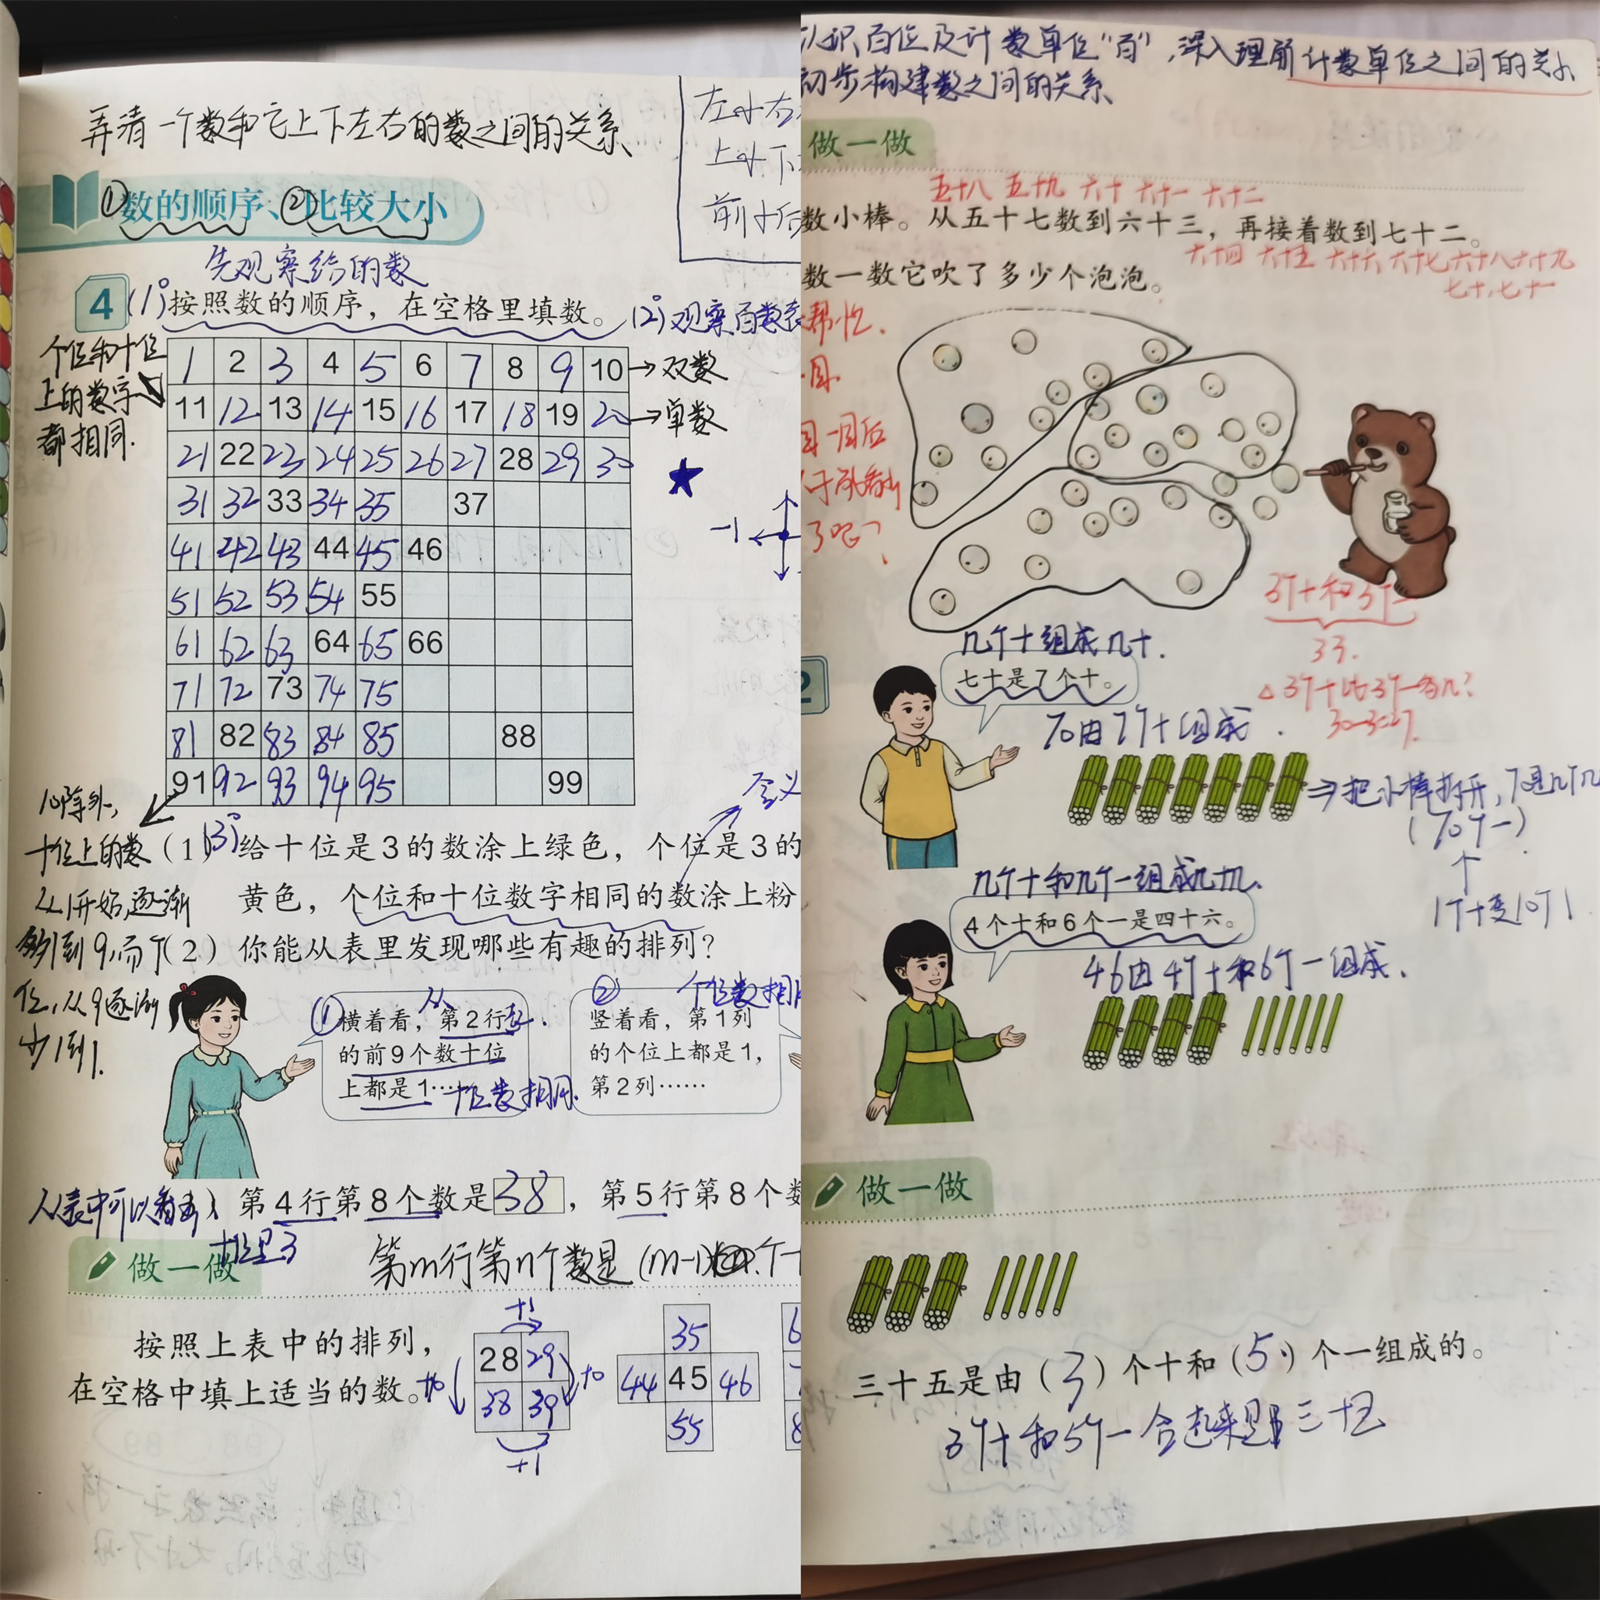 弄清一个数和它上下左右的数之间的关系
左小右
上小下
前小后
①数的顺序、②比较大小
先观察给的数
4 (1)按照数的顺序，在空格里填数。 (2)观察百数表
个位和十位
上的数字
都相同.
1 2 3 4 5 6 7 8 9 10 →双数
11 12 13 14 15 16 17 18 19 20 →单数
21 22 23 24 25 26 27 28 29 30
31 32 33 34 35 37
41 42 43 44 45 46
51 52 53 54 55
61 62 63 64 65 66
71 72 73 74 75
81 82 83 84 85 88
91 92 93 94 95 99
★
-1
含义
10除外,
十位上的数
从1开始,逐渐
到9,而个
位,从9逐渐
少1到1.
(1)(3)给十位是3的数涂上绿色，个位是3的
黄色，个位和十位数字相同的数涂上粉
(2) 你能从表里发现哪些有趣的排列？
①横着看，从第2行起.
的前9个数十位
上都是1……十位数相同.
② 个位数相同
竖着看，第1列
的个位上都是1，
第2列……
从表中可以看出 第4行第8个数是38，第5行第8个数
十位是3
做一做
第m行第n个数是(m-1) 个十
按照上表中的排列，
在空格中填上适当的数。
+1
28 29
38 39
+10 +10
+1
35
44 45 46
55
认识百位及计数单位"百",深入理解计数单位之间的关系
初步构建数之间的关系
做一做
五十八 五十九 六十 六十一 六十二
数小棒。从五十七数到六十三，再接着数到七十二。
六十四 六十五 六十六 六十七 六十八 六十九
七十,七十一
数一数它吹了多少个泡泡。
帮忙.
3个十和3个一
33.
△ 3个十比3个一多几?
30-3=27.
几个十组成几十.
七十是7个十。
70由7个十组成.
⇒把小棒拆开,7是几个几
(70个一)
↑
1个十变10个1
几个十和几个一组成几十几.
4个十和6个一是四十六。
46由4个十和6个一组成.
2
做一做
三十五是由（3）个十和（5）个一组成的。
3个十和5个一合起来是三十五